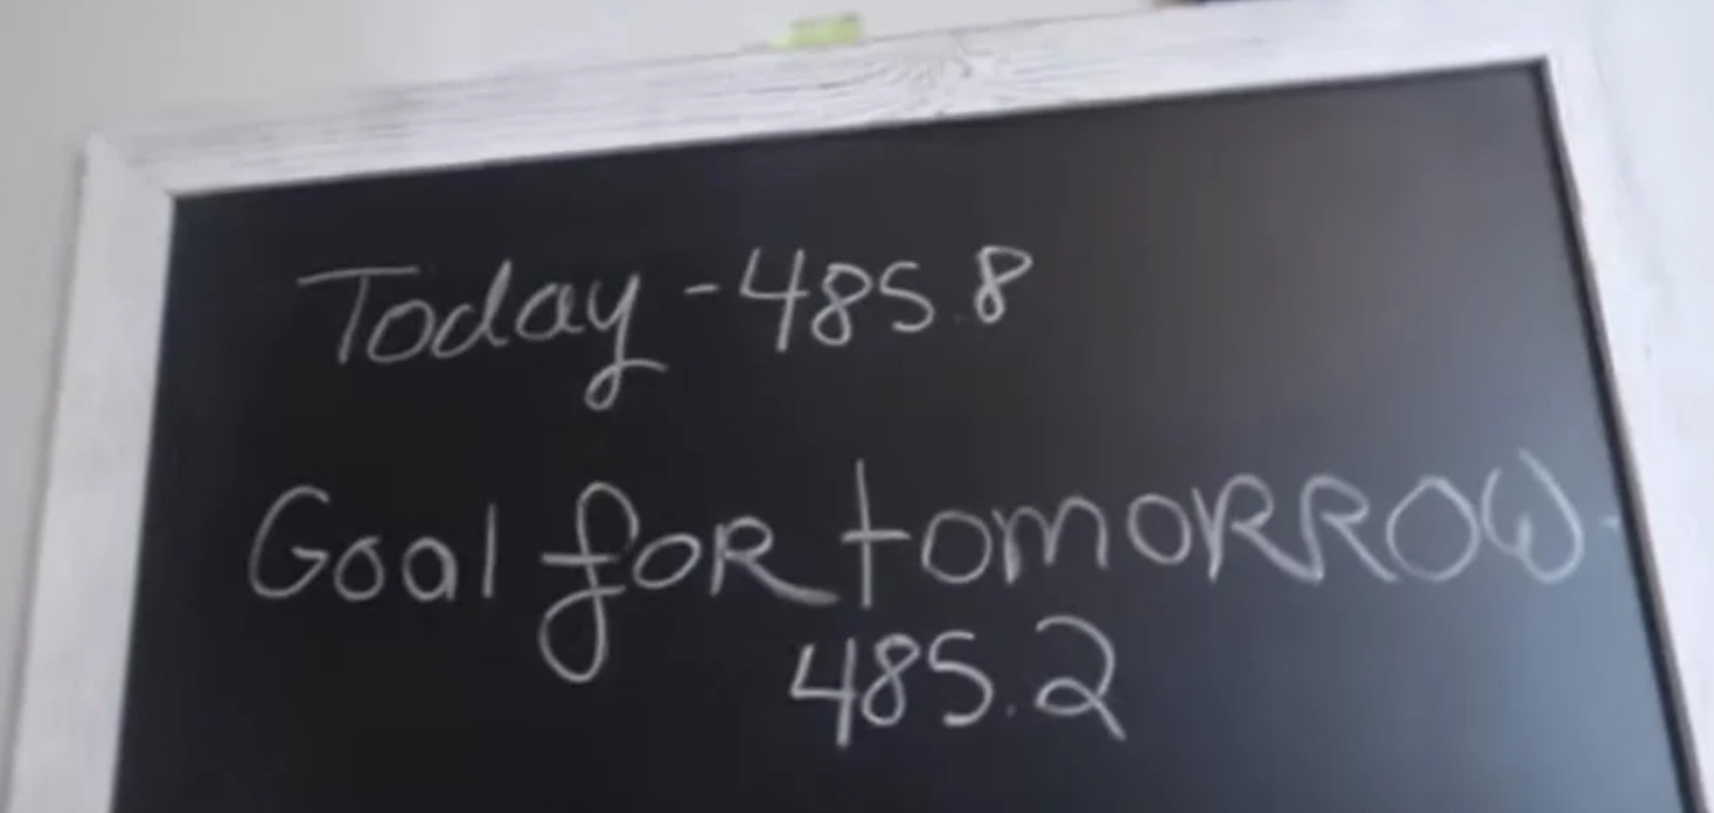 Today - 485.8
Goal for tomorrow -
485.2